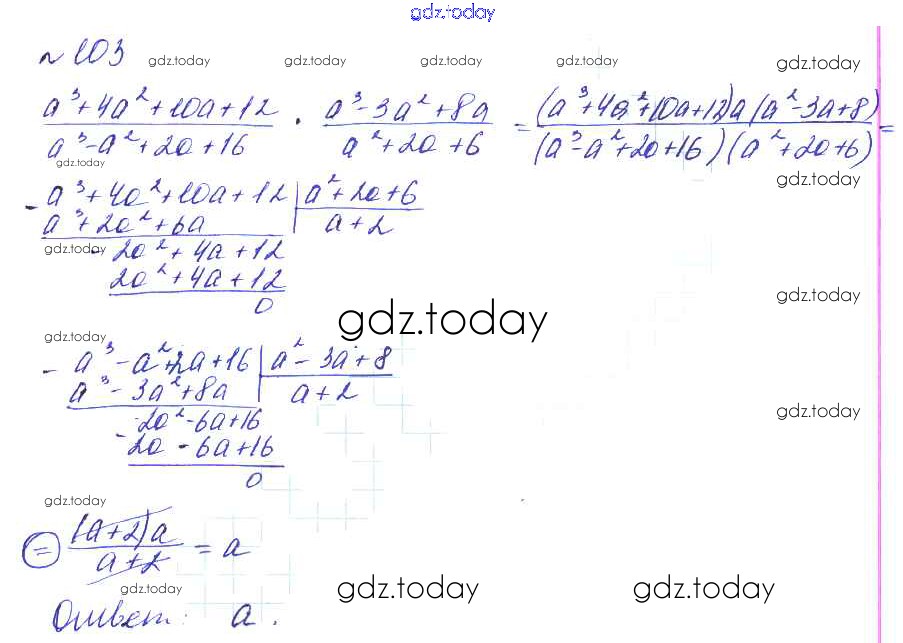 gdz.today
№ 103
gdz.today gdz.today gdz.today gdz.today gdz.today
a³+4a²+10a+12 / a³-a²+2a+16 · a³-3a²+8a / a²+2a+6 = (a³+4a²+10a+12)a(a²-3a+8) / (a³-a²+2a+16)(a²+2a+6) =
gdz.today
gdz.today
- a³+4a²+10a+12 | a²+2a+6
a³+2a²+6a | a+2
gdz.today
- 2a²+4a+12
2a²+4a+12
0
gdz.today
gdz.today
gdz.today
- a³-a²+2a+16 | a²-3a+8
a³-3a²+8a | a+2
gdz.today
- 2a²-6a+16
2a-6a+16
0
gdz.today
= (a+2)a / a+2 = a
gdz.today gdz.today gdz.today
Ответ: a.